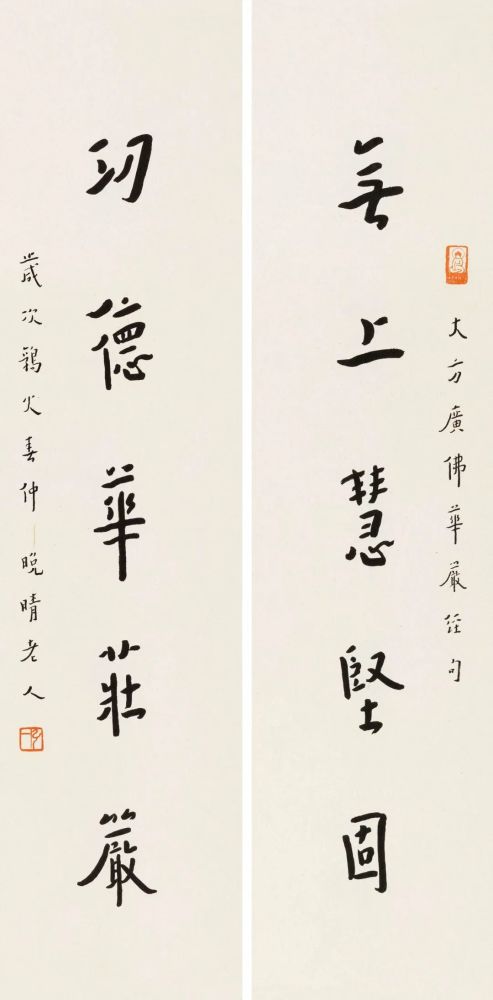 大方廣佛華嚴經句
无上慧堅固
功德華莊嚴
歲次鶉火春仲晚晴老人